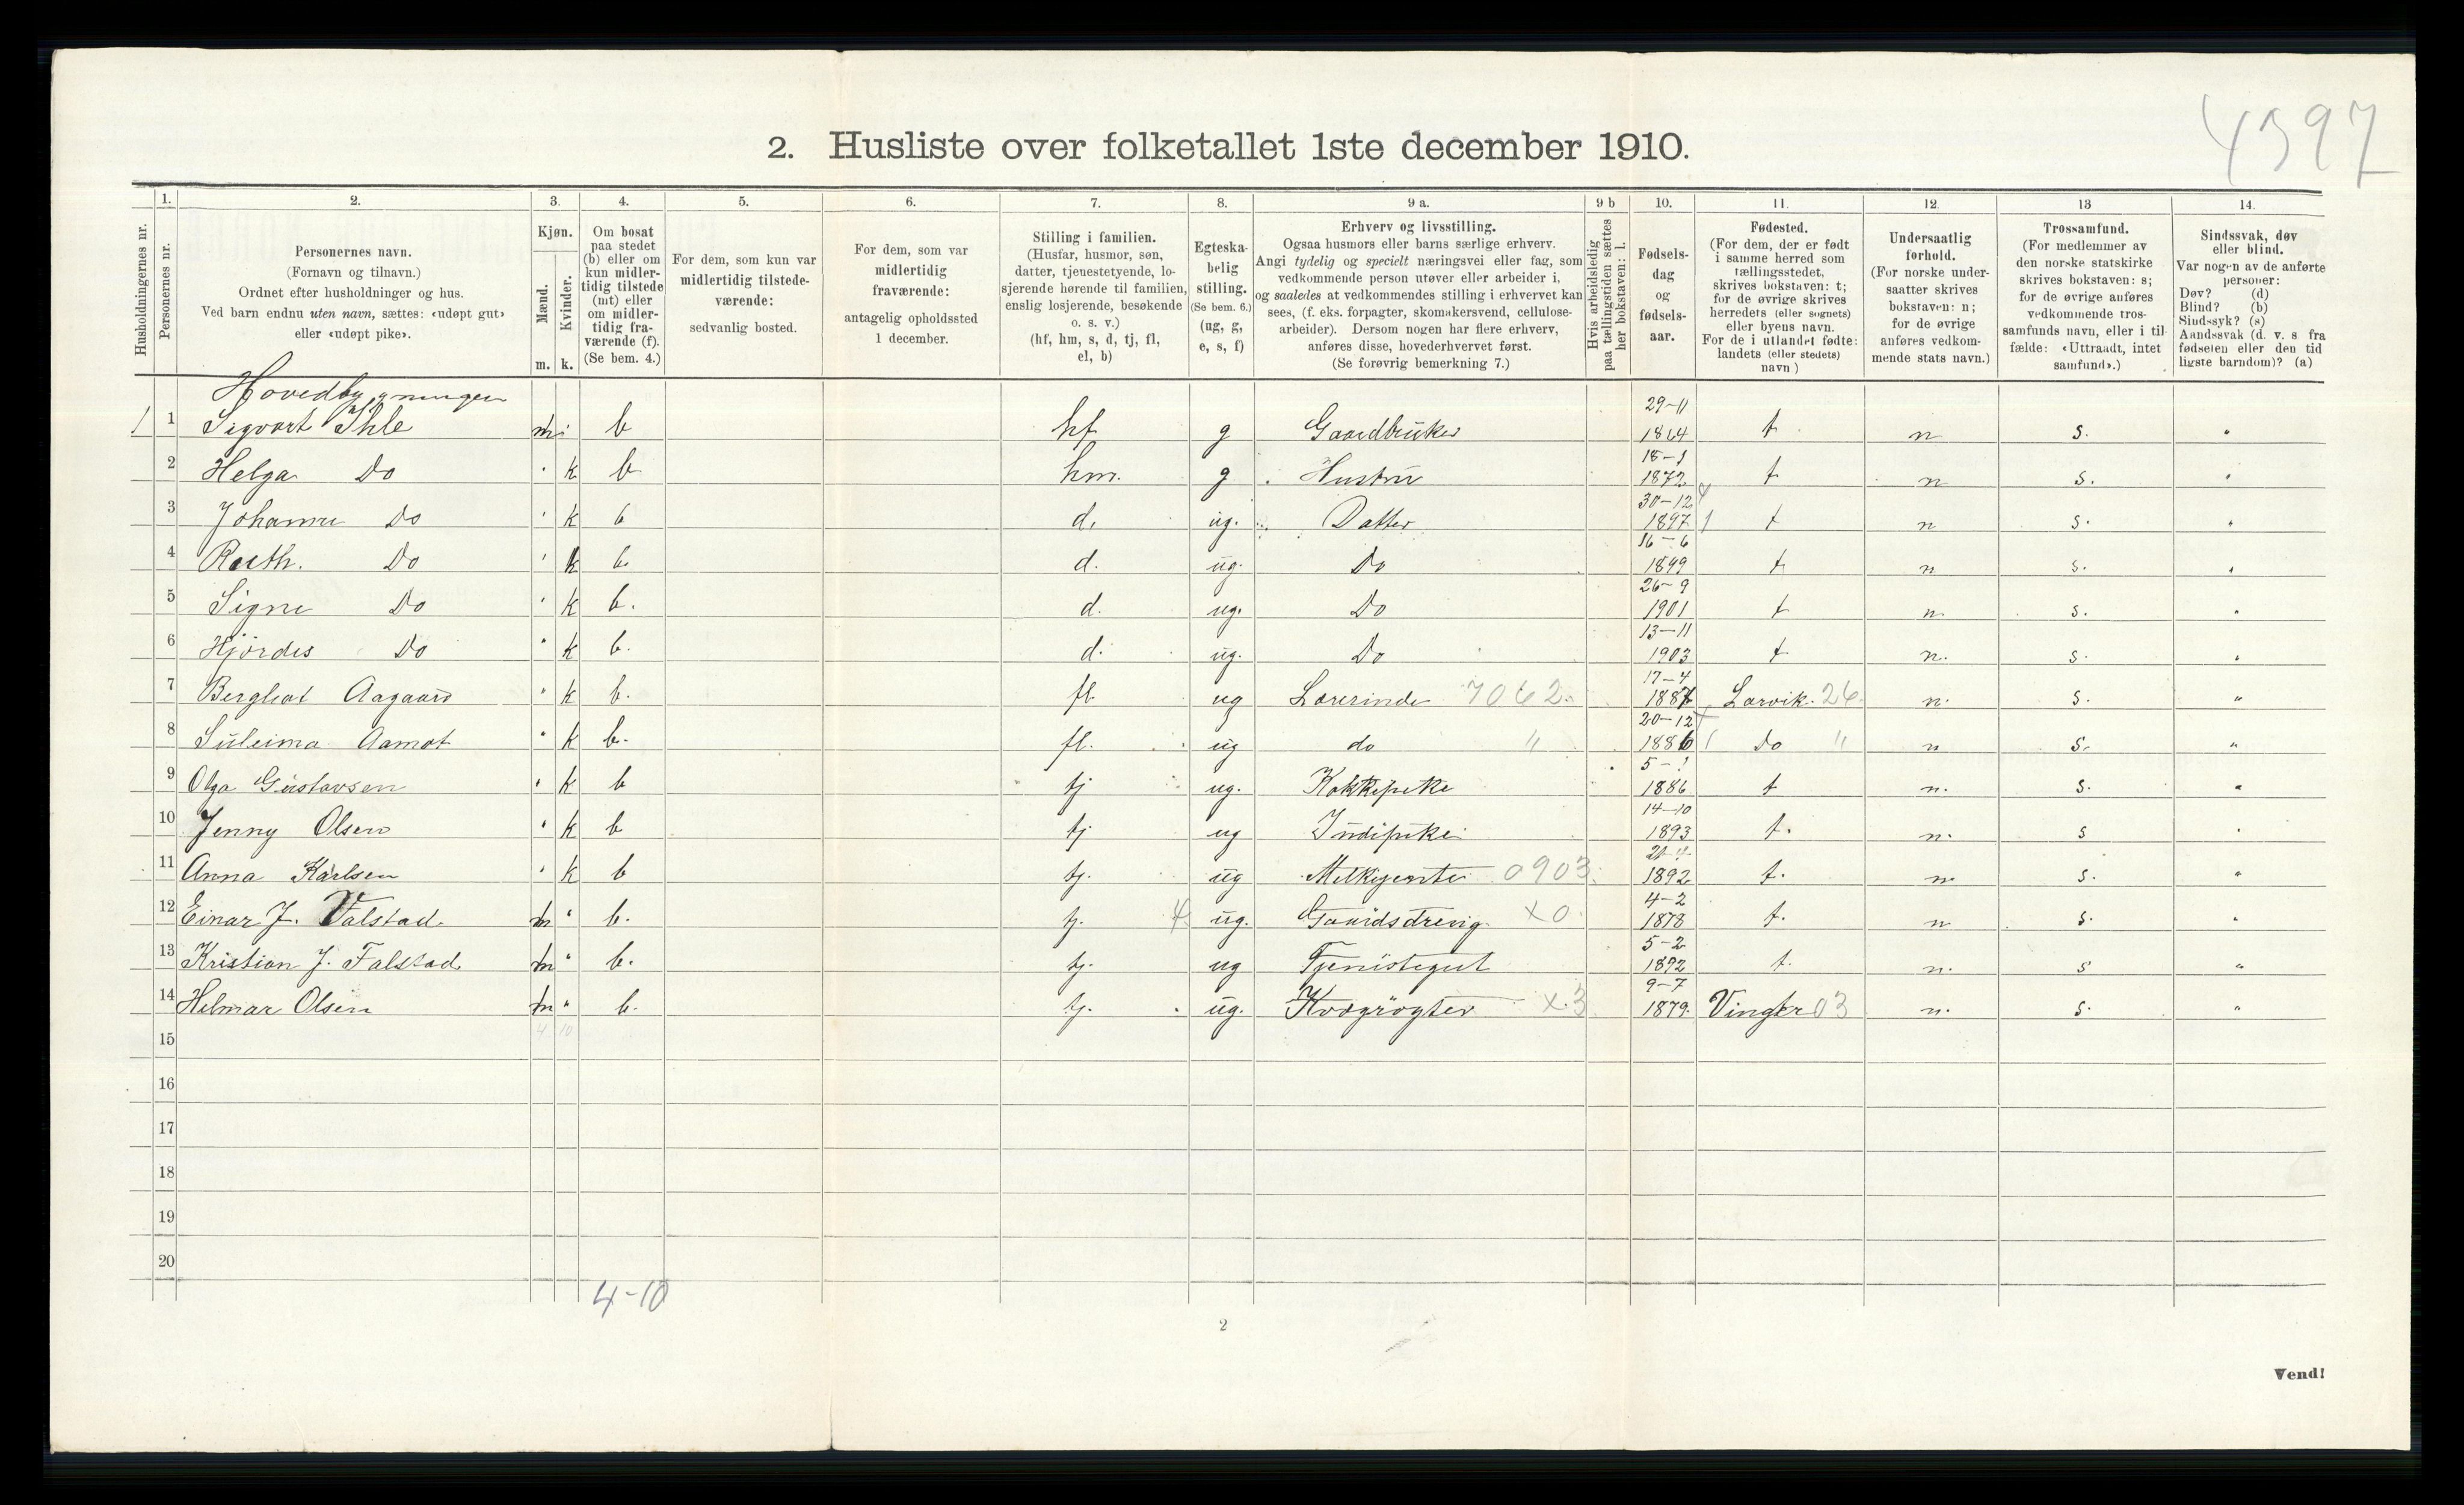 4397
2. Husliste over folketallet 1ste december 1910.
Husholdningernes nr.
1. Personernes nr.
2. Personernes navn. (Fornavn og tilnavn.) Ordnet efter husholdninger og hus. Ved barn endnu uten navn, sættes: «udøpt gut» eller «udøpt pike».
3. Kjøn. Mænd. m. Kvinder. k.
4. Om bosat paa stedet (b) eller om kun midlertidig tilstede (mt) eller om midlertidig fraværende (f). (Se bem. 4.)
5. For dem, som kun var midlertidig tilstedeværende: sedvanlig bosted.
6. For dem, som var midlertidig fraværende: antagelig opholdssted 1 december.
7. Stilling i familien. (Husfar, husmor, søn, datter, tjenestetyende, losjerende hørende til familien, enslig losjerende, besøkende o. s. v.) (hf, hm, s, d, tj, fl, el, b)
8. Egteskabelig stilling. (Se bem. 6.) (ug, g, e, s, f)
9 a. Erhverv og livsstilling. Ogsaa husmors eller barns særlige erhverv. Angi tydelig og specielt næringsvei eller fag, som vedkommende person utøver eller arbeider i, og saaledes at vedkommendes stilling i erhvervet kan sees, (f. eks. forpagter, skomakersvend, cellulosearbeider). Dersom nogen har flere erhverv, anføres disse, hovederhvervet først. (Se forøvrig bemerkning 7.)
9 b Hvis arbeidsledig paa tællingstiden sættes her bokstaven: l.
10. Fødselsdag og fødselsaar.
11. Fødested. (For dem, der er født i samme herred som tællingsstedet, skrives bokstaven: t; for de øvrige skrives herredets (eller sognets) eller byens navn. For de i utlandet fødte: landets (eller stedets) navn)
12. Undersaatlig forhold. (For norske undersaatter skrives bokstaven: n; for de øvrige anføres vedkommende stats navn.)
13 Trossamfund. (For medlemmer av den norske statskirke skrives bokstaven: s; for de øvrige anføres vedkommende trossamfunds navn, eller i tilfælde: «Uttraadt, intet samfund».)
14. Sindssvak, døv eller blind. Var nogen av de anførte personer: Døv? (d) Blind? (b) Sindssyk? (s) Aandssvak (d. v. s fra fødselen eller den tidligste barndom)? (a)
Hovedbygningen
1 1 Sigvart Ihle m b hf g Gaardbruker 29-11 1864 t n s. "
2 Helga Do k b hm. g Hustru 18-1 1872 t n s. "
3 Johanne Do k b d. ug. Datter 30-12 1897 t n s. "
4 Ruth. Do k b. d. ug. Do 16-6 1899 t n s. "
5 Signe Do k b. d. ug. Do 26-9 1901 t n. s. "
6 Hjördis Do k b. d. ug. Do 13-11 1903 t n. s. "
7 Bergliot Aagaard k b. fl ug Lærerinde 7062. 17-4 1887 Larvik. 26 n. s. "
8 Suleima Aamot k b. fl. ug do " 20-12 1886 Do " n s. "
9 Olga Gustavsen k b tj ug. Kokkepike 1886 t n. s. "
10 Jenny Olsen k b tj ug Indepike 14-10 1893 t. n. s
11 Anna Karlsen k b tj. ug Melkejente 0903. 1892 t. n s. "
12 Einar J. Falstad m " b. tj. 4 ug. Gaardsdreng X0 4-2 1878 t. n s. "
13 Kristian J. Falstad m " b. tj. ug Tjenistegut 5-2 1892 t. n. s "
14 Helmar Olsen m " b. tj. ug. Kvægrøgter X.3 9-7 1879. Vinger 03 n. s. "
4 10
15
16
17
18
19
20
4-10
2
Vend!